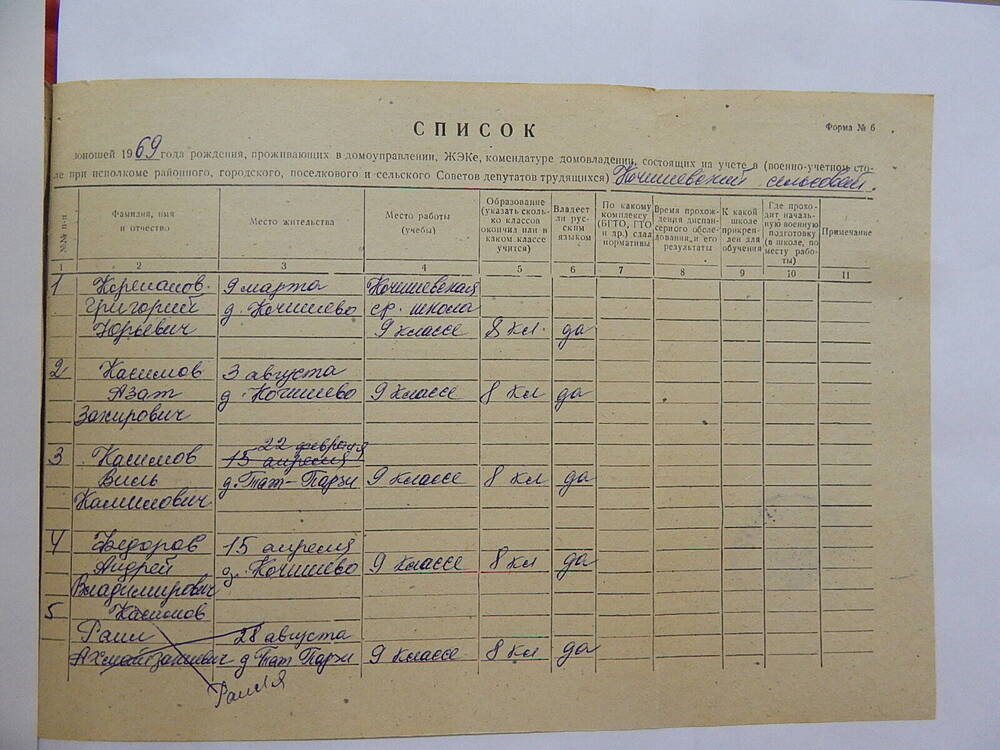 СПИСОК
Форма № 6
юношей 1969 года рождения, проживающих в домоуправлении, ЖЭКе, комендатуре домовладении, состоящих на учете в (военно-учетном сто-
ле при исполкоме районного, городского, поселкового и сельского Советов депутатов трудящихся) Кочишевский сельсовет.
№№ п-п
Фамилия, имя и отчество
Место жительства
Место работы (учебы)
Образование (указать сколько классов окончил или в каком классе учится)
Владеет ли русским языком
По какому комплексу (БГТО, ГТО и др.) сдал нормативы
Время прохождения диспансерного обследования, и его результаты
К какой школе прикреплен для обучения
Где проходит начальную военную подготовку (в школе, по месту работы)
Примечание
1 2 3 4 5 6 7 8 9 10 11
1 Корепанов 9 марта Кочишевская
Григорий д. Кочишево ср. школа
Юрьевич 9 классе 8 кл. да
2 Касимов 3 августа
Азат д. Кочишево 9 классе 8 кл да
Закирович
22 февраля
3 Касимов 15 апреля
Виль д. Тат-Парзи 9 классе 8 кл да
Камилович
4 Федоров 15 апреля
Андрей д. Кочишево 9 классе 8 кл да
Владимирович
5 Касимов
Раил 28 августа
д Тат Парзи 9 классе 8 кл да